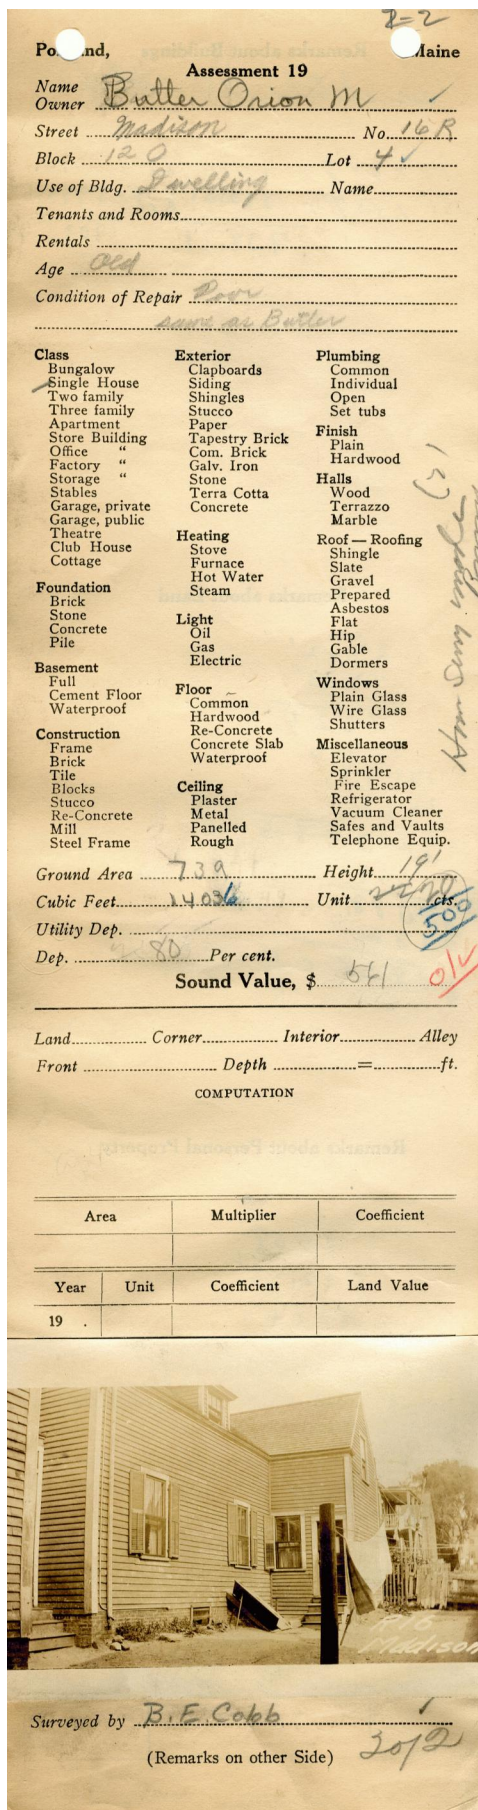 2=2
Po nd, Maine
Assessment 19
Name
Owner Butler Orion M ✓
Street Madison No. 16 R
Block 120 Lot 4 ✓
Use of Bldg. Dwelling Name
Tenants and Rooms
Rentals
Age Old
Condition of Repair Poor
same as Butler
Class
Bungalow
Single House
Two family
Three family
Apartment
Store Building
Office "
Factory "
Storage "
Stables
Garage, private
Garage, public
Theatre
Club House
Cottage
Foundation
Brick
Stone
Concrete
Pile
Basement
Full
Cement Floor
Waterproof
Construction
Frame
Brick
Tile
Blocks
Stucco
Re-Concrete
Mill
Steel Frame
Exterior
Clapboards
Siding
Shingles
Stucco
Paper
Tapestry Brick
Com. Brick
Galv. Iron
Stone
Terra Cotta
Concrete
Heating
Stove
Furnace
Hot Water
Steam
Light
Oil
Gas
Electric
Floor
Common
Hardwood
Re-Concrete
Concrete Slab
Waterproof
Ceiling
Plaster
Metal
Panelled
Rough
Plumbing
Common
Individual
Open
Set tubs
Finish
Plain
Hardwood
Halls
Wood
Terrazzo
Marble
Roof — Roofing
Shingle
Slate
Gravel
Prepared
Asbestos
Flat
Hip
Gable
Dormers
Windows
Plain Glass
Wire Glass
Shutters
Miscellaneous
Elevator
Sprinkler
Fire Escape
Refrigerator
Vacuum Cleaner
Safes and Vaults
Telephone Equip.
Ground Area 739 Height 19'
Cubic Feet 14036 Unit 20 cts.
500
Utility Dep.
Dep. 80 Per cent.
O/V
Sound Value, $ 561
Land Corner Interior Alley
Front Depth = ft.
COMPUTATION
Area Multiplier Coefficient
Year Unit Coefficient Land Value
19 .
R16
Madison
Surveyed by B. E. Cobb
(Remarks on other Side) 3012